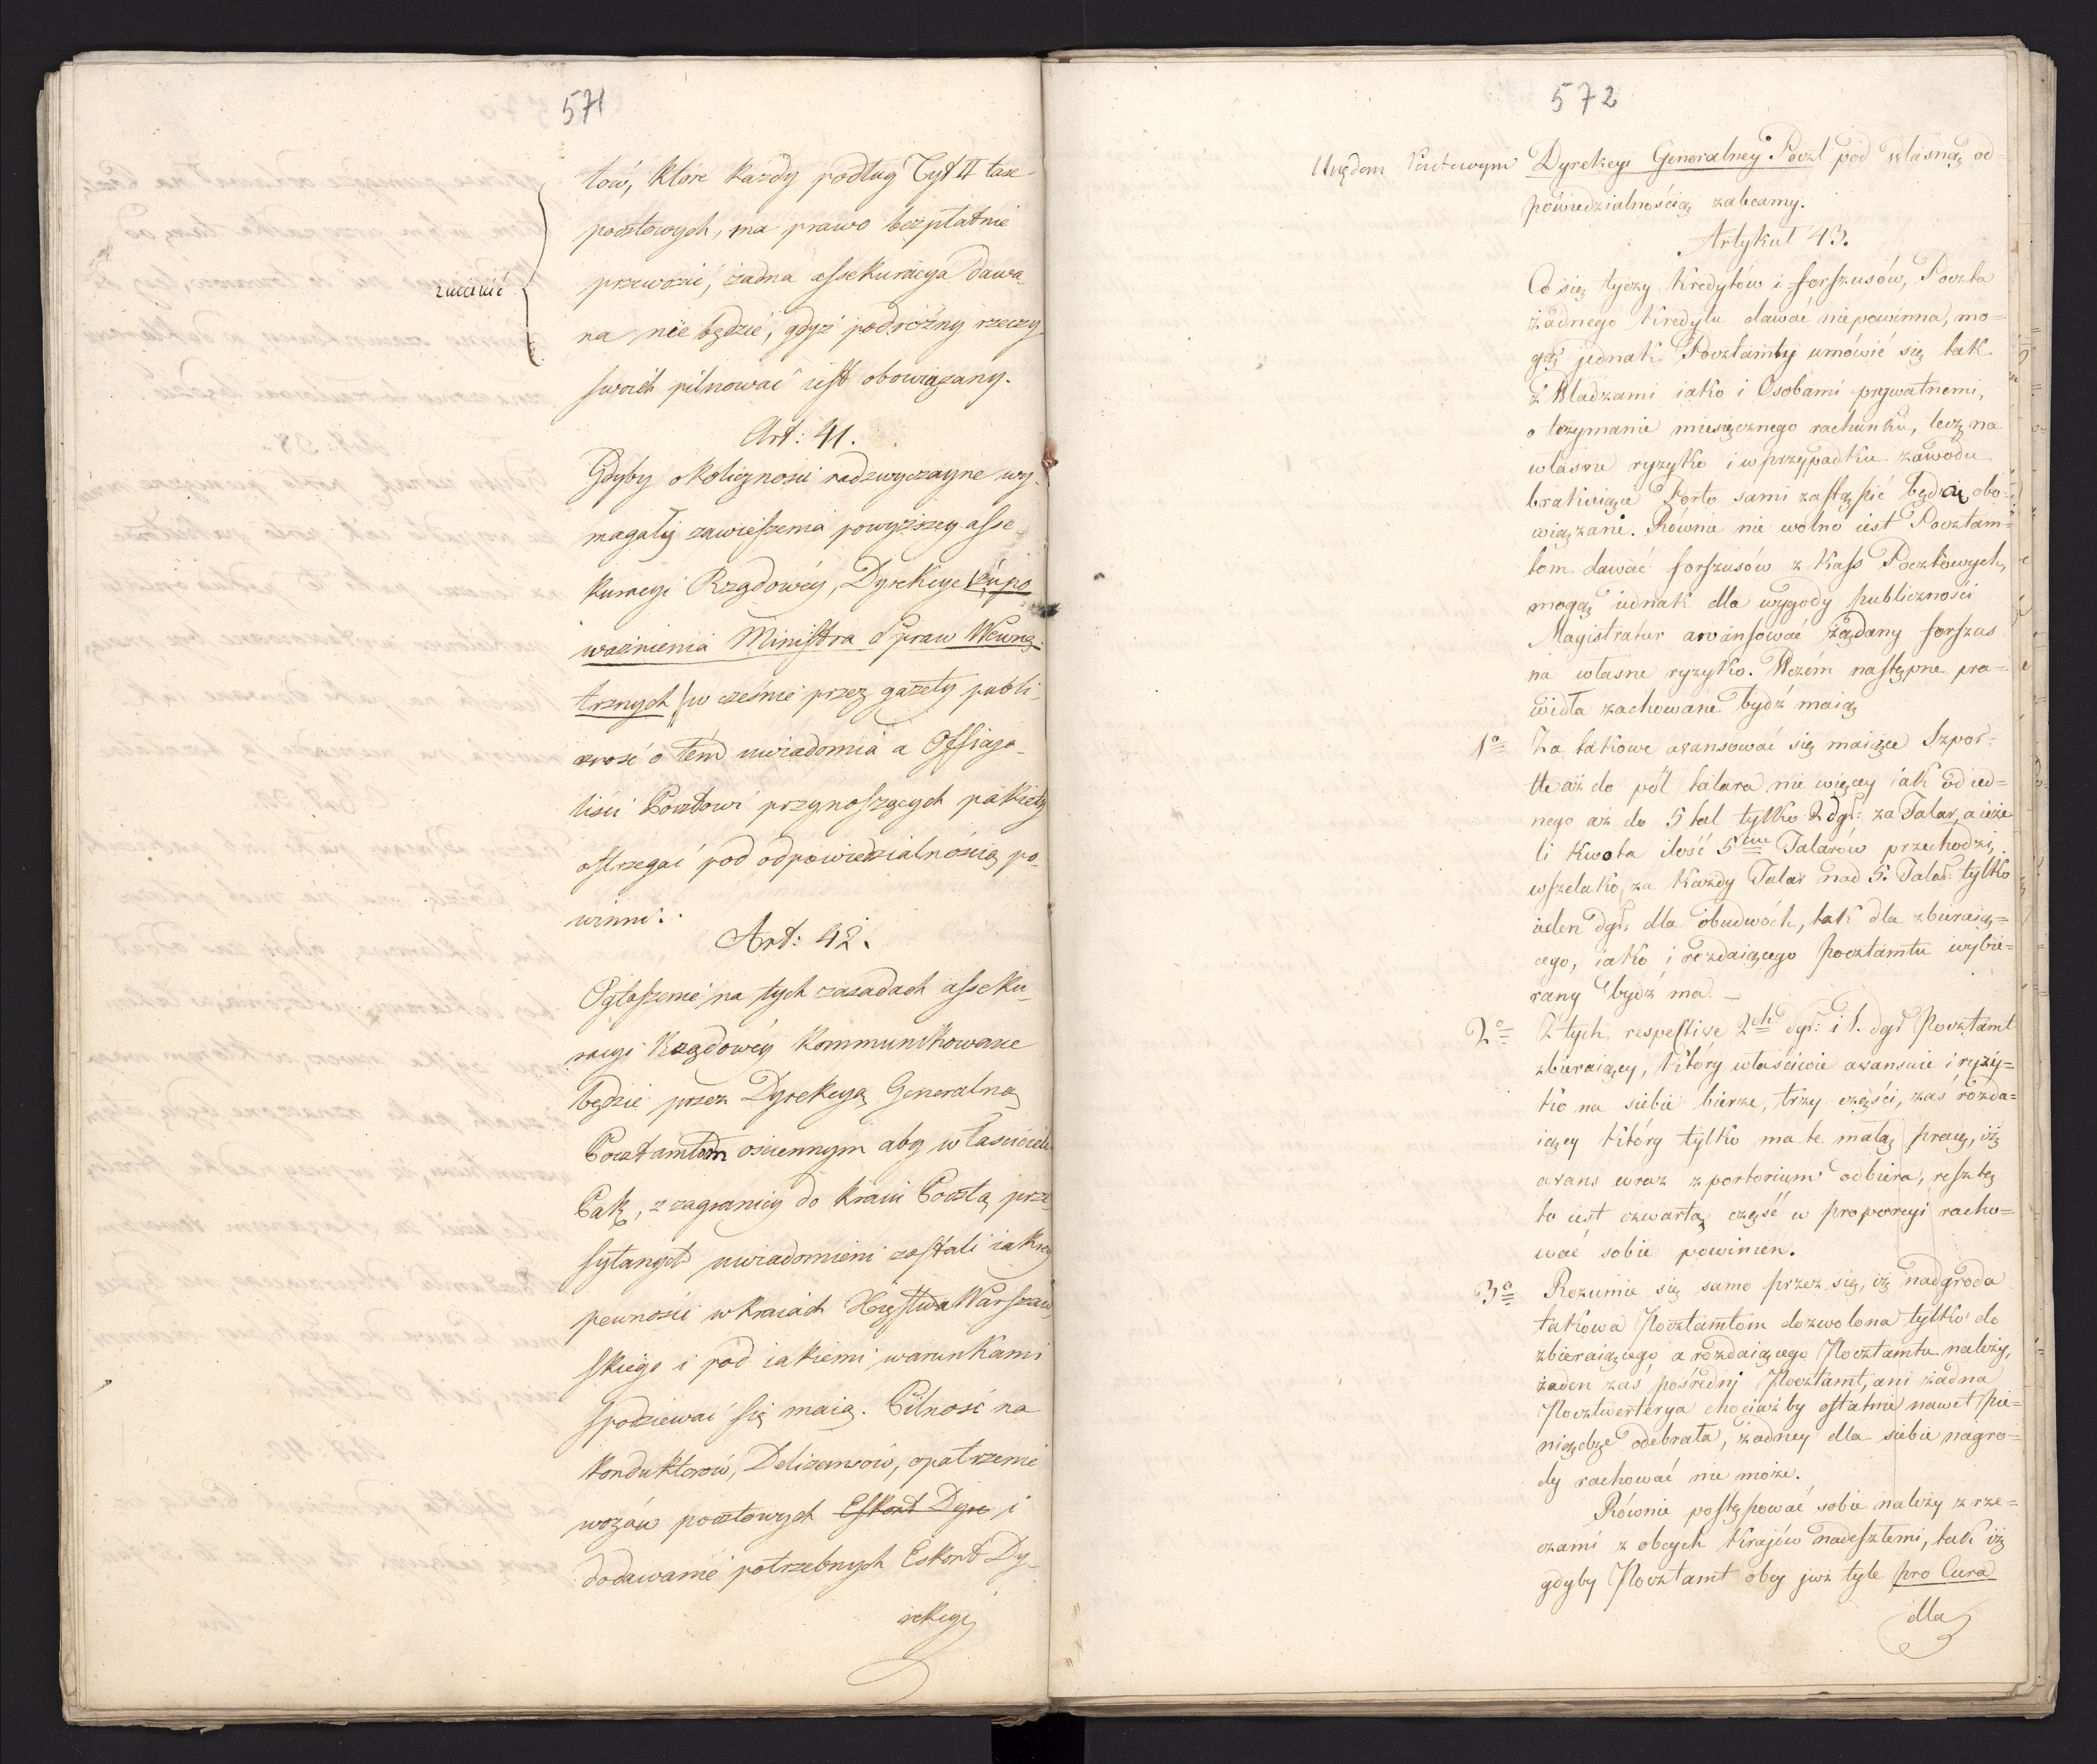 571
tów, które każdy podług Tyt II tax
pocztowych, ma prawo bezpłatnie
przewozić, żadna assekuracya dawa-
zmienić
na nie będzie, gdyż podróżny rzeczy
swoich pilnować iest obowiązany.
Art: 41.
Gdyby okoliczności nadzwyczayne wy-
magały zawieszenia powyższey asse-
kuracyi Rządowéy, Dyrekcye z upo
ważnienia Ministra Spraw Wewnę-
trznych w cześnie przez gazety publi-
czność o tém uwiadomia a Officya-
liści Pocztowi przynoszących pakiety
ostrzegać pod odpowiedzialnością po-
winni.
Art: 42.
Ogłoszenie na tych zasadach asseku-
racyi Rządowéy kommunikowane
będzie przez Dyrekcyą Generalną
Pocztamtom ościennym aby właściciele
Pak, z zagranicy do kraiu Pocztą prze
syłanych uwiadomieni zostali iakiey
pewności w kraiach Xięstwa Warszaw
skiego i pod iakiemi warunkami
spodziewać się maią. Pilność na
konduktorów, Deliżansów, opatrzenie
wozów pocztowych Eskort Dyre i
dodawanie potrzebnych Eskort Dy-
rekcyi
572
Urzędom Pocztowym Dyrekcyi Generalney Poczt pod własną od-
powiedzialnością zalecamy.
Artykuł 43.
Co się tyczy Kredytów i forszusów, Poczta
żadnego Kredytu dawać nie powinna, mo-
gą jednak Pocztamty umówić się tak
z Władzami iako i Osobami prywatnemi,
o trzymanie miesięcznego rachunku, lecz na
własne ryzyko i w przypadku zawodu
brakuiące Porto sami zastąpić będą obo-
wiązani. Równie nie wolno iest Pocztam-
tom dawać forszusów z Kass Pocztowych,
mogą iednak dla wygody publiczności
Magistratur awansować żądany forszus
na własne ryzyko. Wczém następne pra-
widła zachowane bydź maią
1o Za takowe awansować się maiące Szpor-
tle aż do pół talara nie więcey iak od ied-
nego aż do 5 tal tylko 2 dgr: za Talar, a ieże
li kwota ilość 5ciu Talarów przechodzi,
wszelako, za każdy Talar nad 5. Talar: tylko
ieden dgr. dla obudwóch, tak dla zbieraią-
cego, iako i rozdaiącego Pocztamtu wybie-
rany bydź ma. —
2o Z tych respective 2ch dgr: i 1. dgr Pocztamt
zbieraiący, który właściwie awansuie i ryzy-
ko na siebie bierze, trzy części, zaś rozda-
iący który tylko ma te małą pracę, iż
awans wraz z portorium odbiera, resztę
to iest czwartą część w proporcyi racho-
wać sobie powinien.
3o Rozumie się samo przez się, iż nadgroda
takowa Pocztamtom dozwolona tylko do
zbieraiącego, a rozdaiącego Pocztamtu należy,
żaden zaś pośredni Pocztamt, ani żadna
Pocztwerterya chociaż by ostatnie nawet pie-
niądze odebrała, żadney dla siebie nagro-
dy rachować nie może.
Równie postępować sobie należy z rze-
czami z obcych Krajów nadeszłemi, tak iż
gdyby Pocztamt obcy już tyle pro Cura
dla